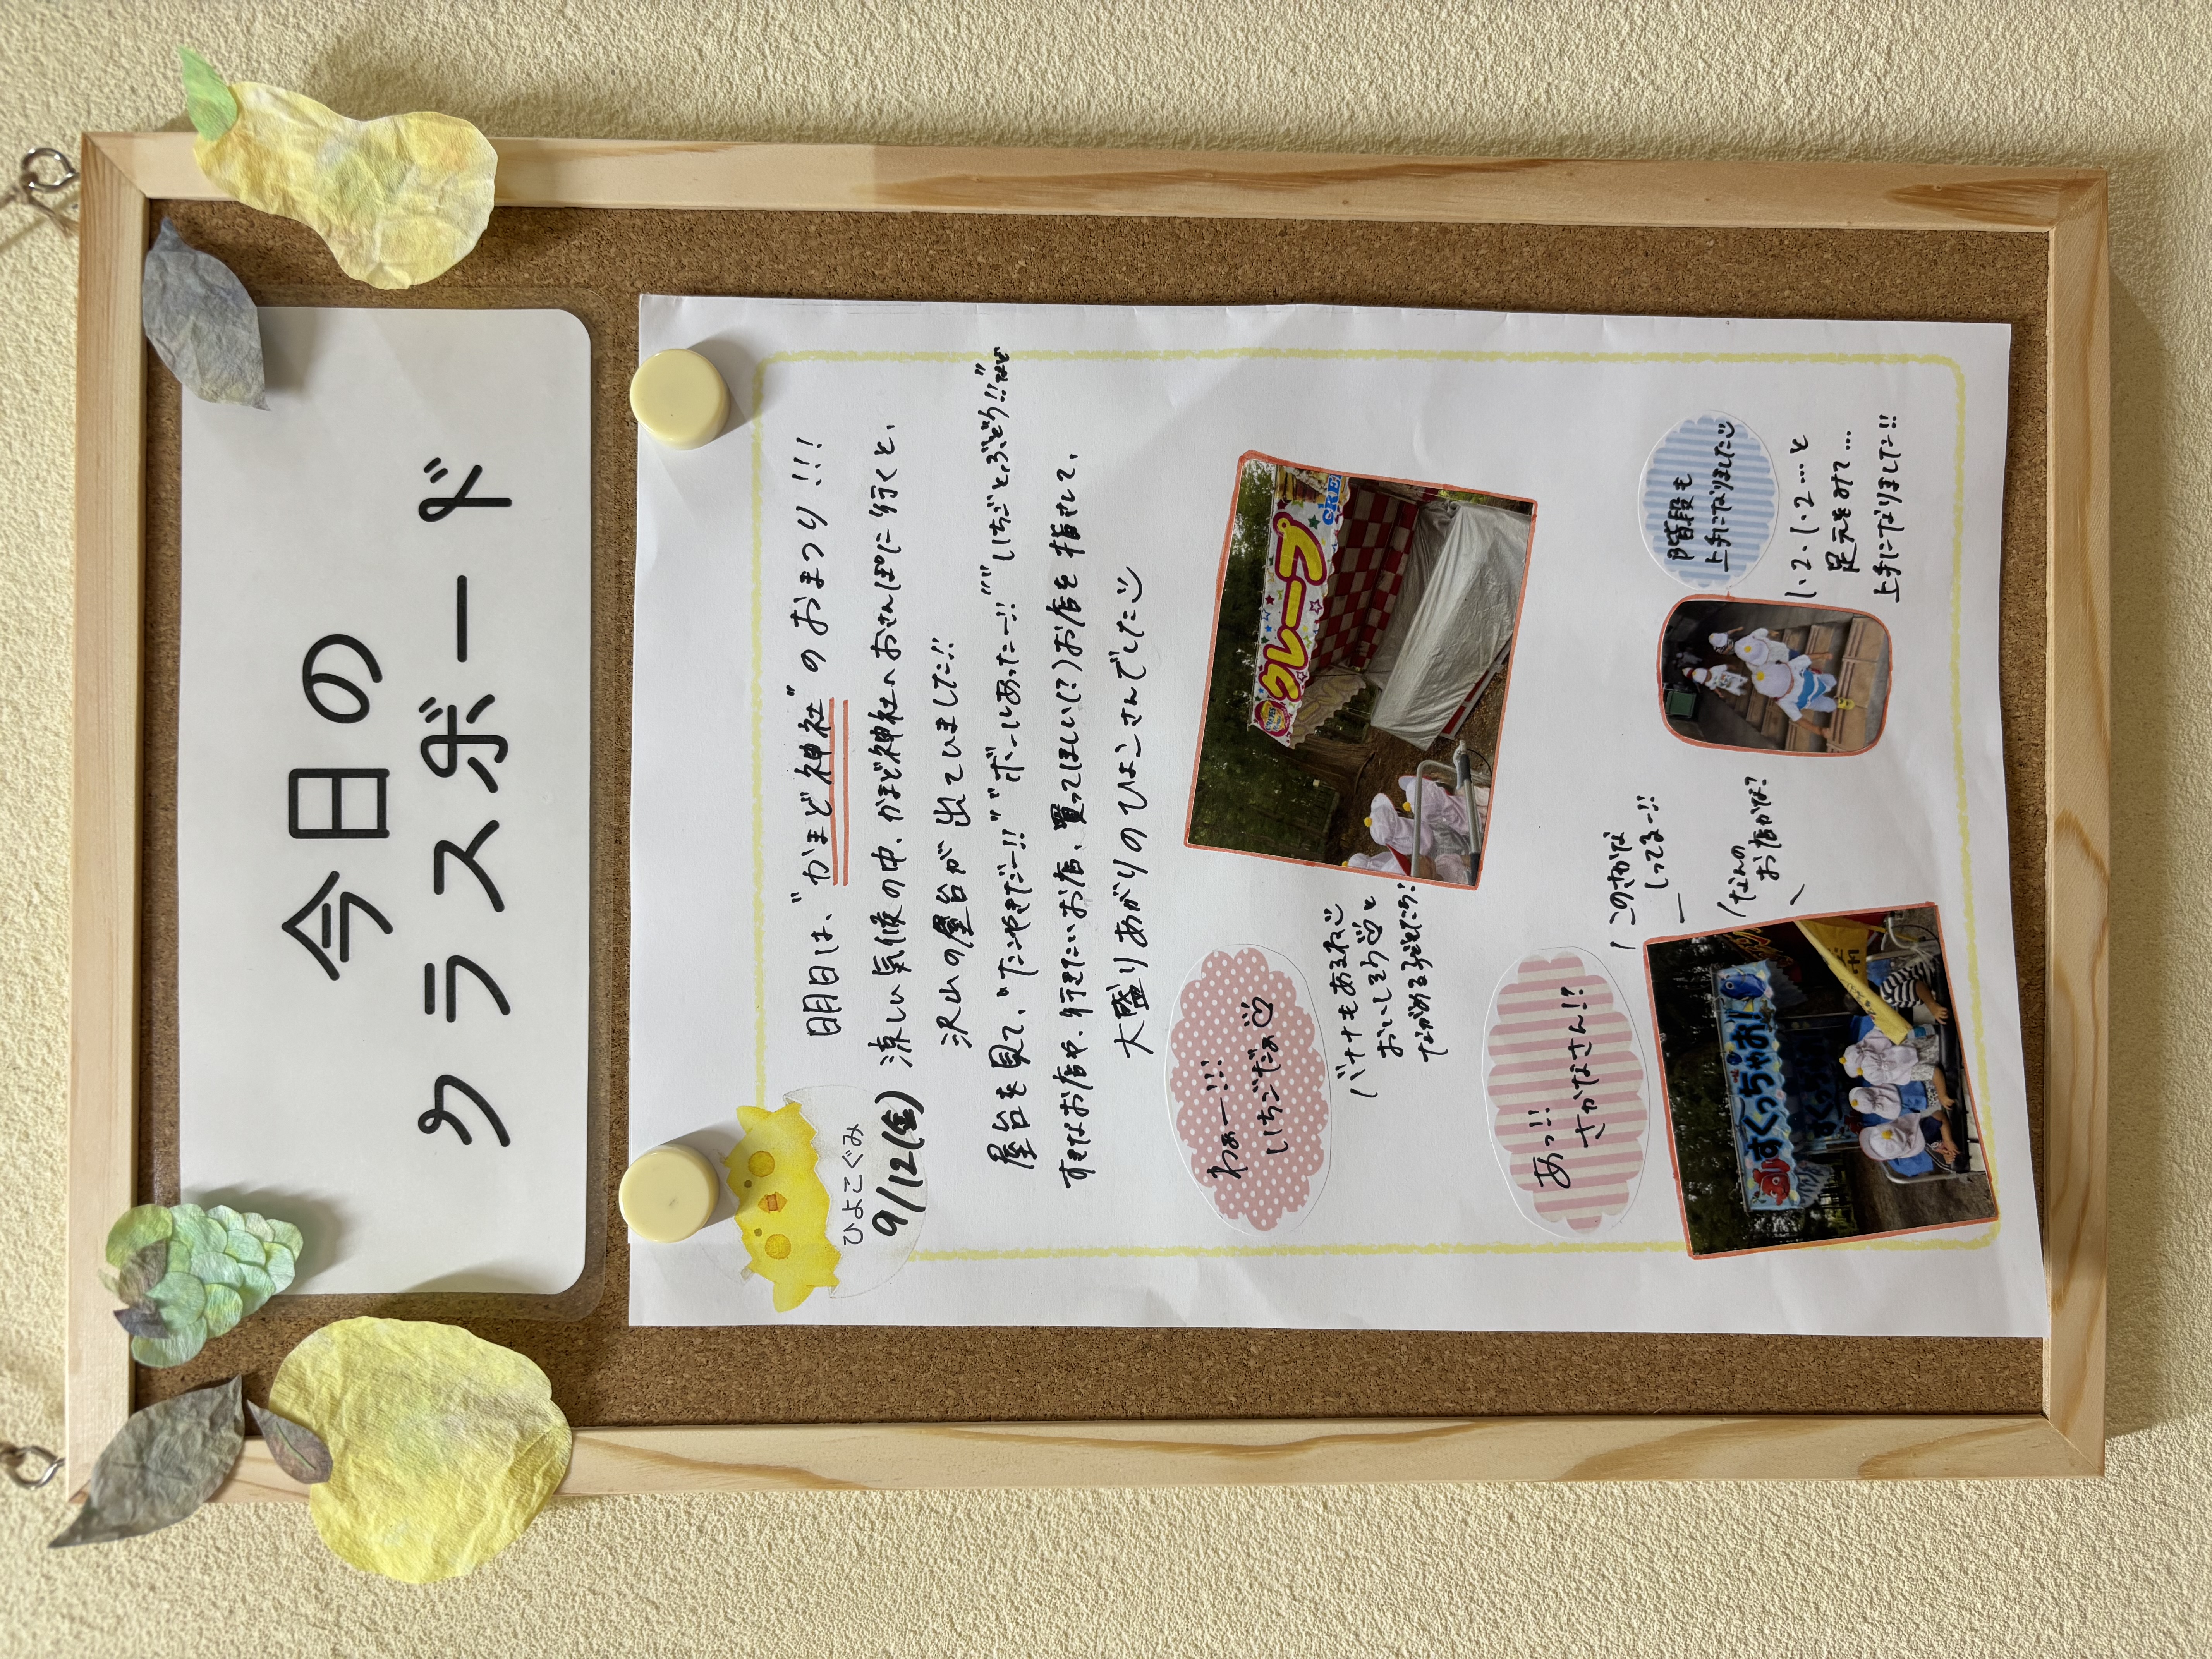 今日の
クラスボード
ひよこぐみ
9/12(金)
明日は、"かまど神社"のおまつり!!!
涼しい気候の中、かまど神社へおさんぽに行くと、
沢山の屋台が出ていました!!
屋台を見て、"たこやきだー!!""ボールあったー!!""いちごとぶどう!!"など
すきなお店や、行きたいお店、買ってほしい(?)お店を指さして、
大盛りあがりのひよこさんでした
わぁー!!!
いちごだぁ♡
クレープ
CRE
バナナもあるね
おいしそう♡と
ながめる子どもたち!
あっ!!
さかなさん!?
このさかな
しってるー!!
なんの
お店かな?
すくっちゃお!
階段も
上手になりました
1、2、1、2…と
足元をみて…
上手になりました!!